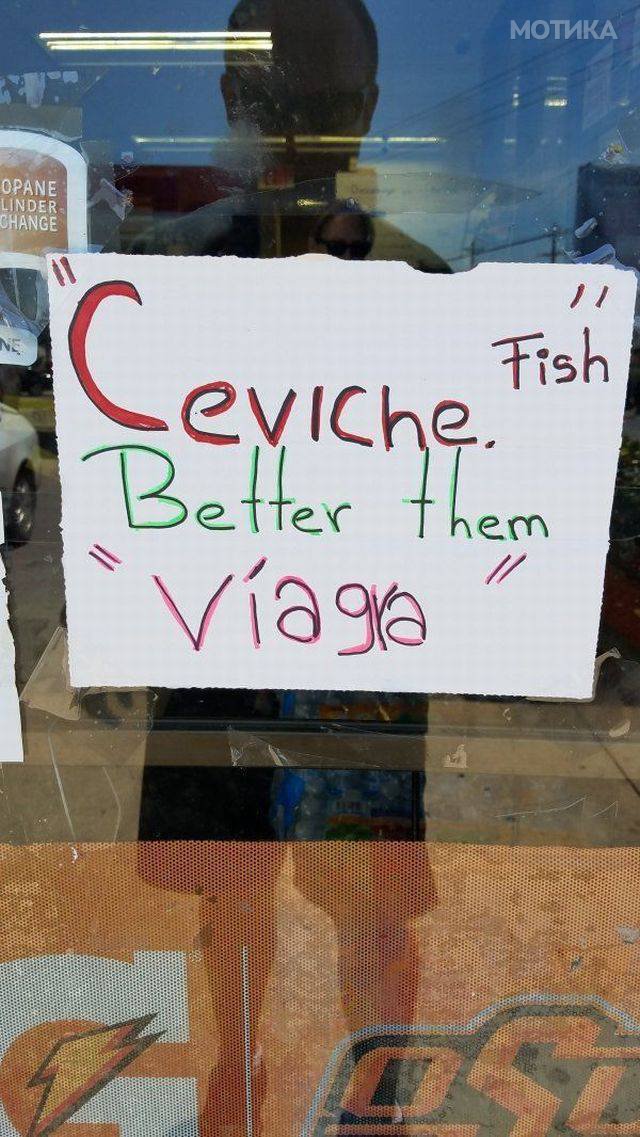 МОТИКА
OPANE
LINDER
CHANGE
NE
"Ceviche. Fish"
Better them
"Viagra"
G
OSU